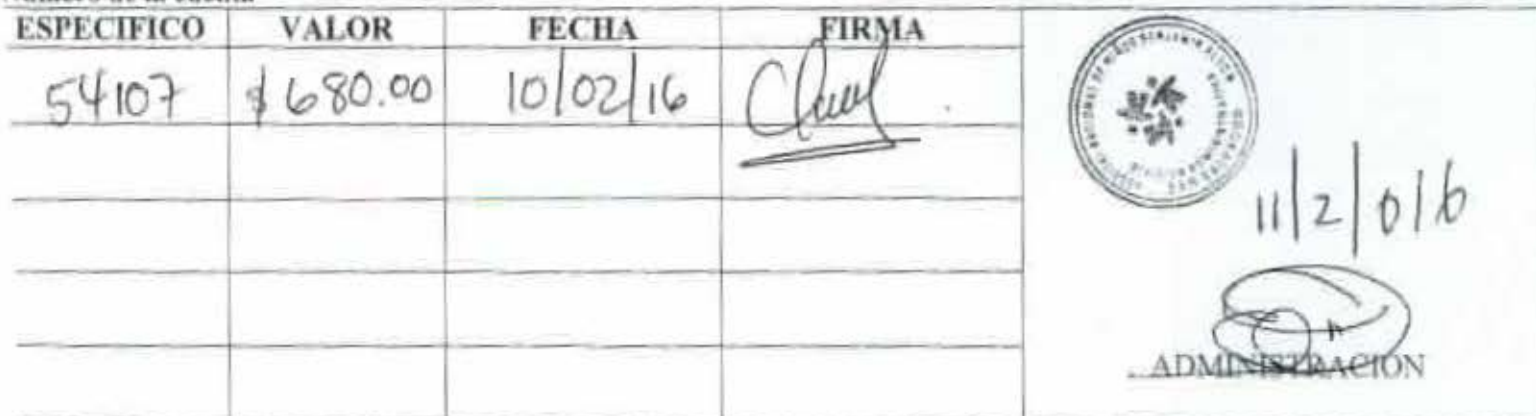 ESPECIFICO VALOR FECHA FIRMA
54107 $680.00 10/02/16
11/2/016
ADMINISTRACION